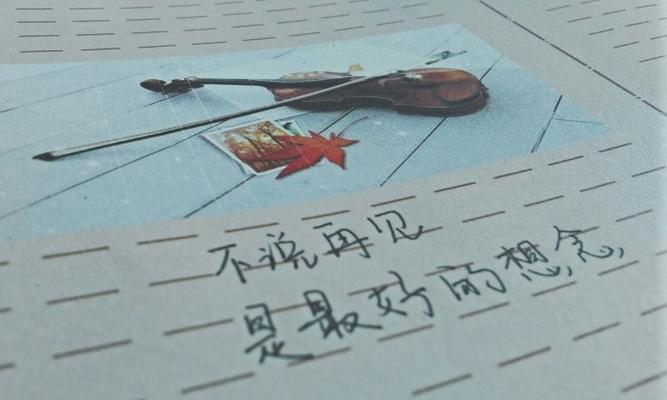 不说再见
是最好的想念